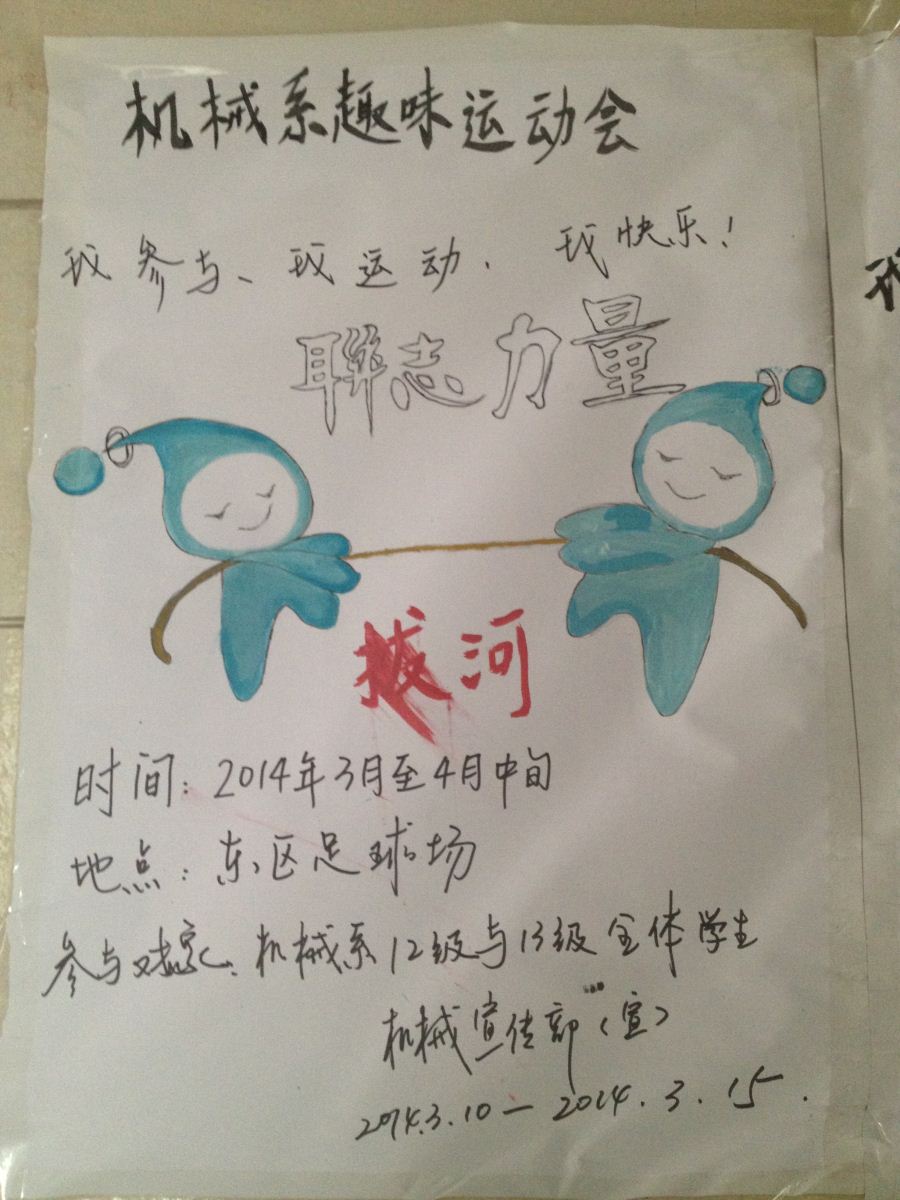 机械系趣味运动会
我参与、我运动. 我快乐!
聯志力量
拔河
时间: 2014年3月至4月中旬
地点: 东区足球场
参与对象、机械系12级与13级全体学生
机械宣传部(宣)
2014.3.10-2014.3.15.
我